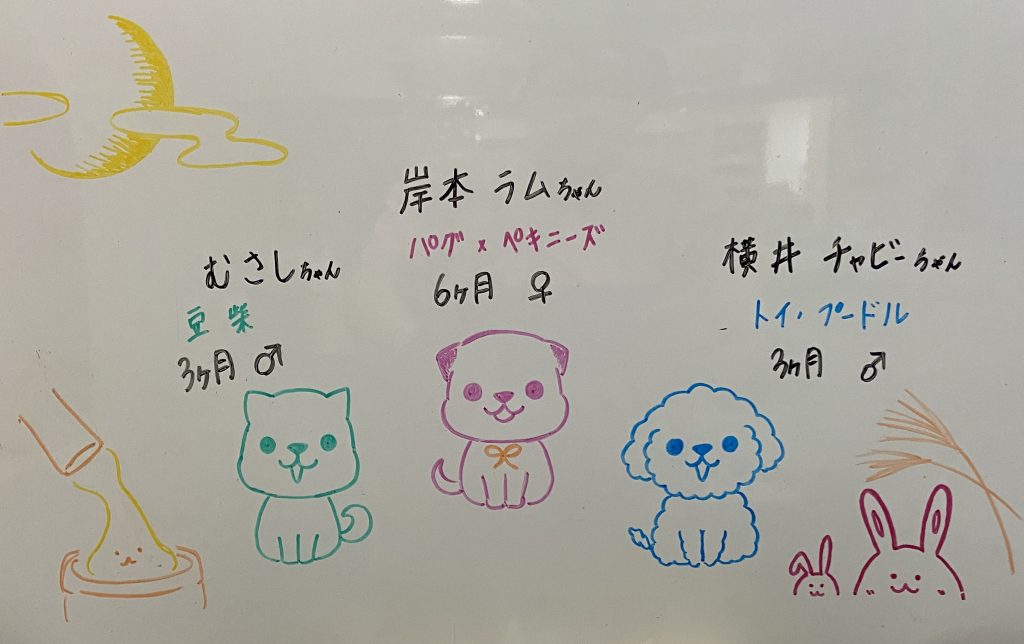 むさしちゃん
豆柴
3ヶ月 ♂
岸本 ラムちゃん
パグ×ペキニーズ
6ヶ月 ♀
横井 チャビーちゃん
トイ・プードル
3ヶ月 ♂